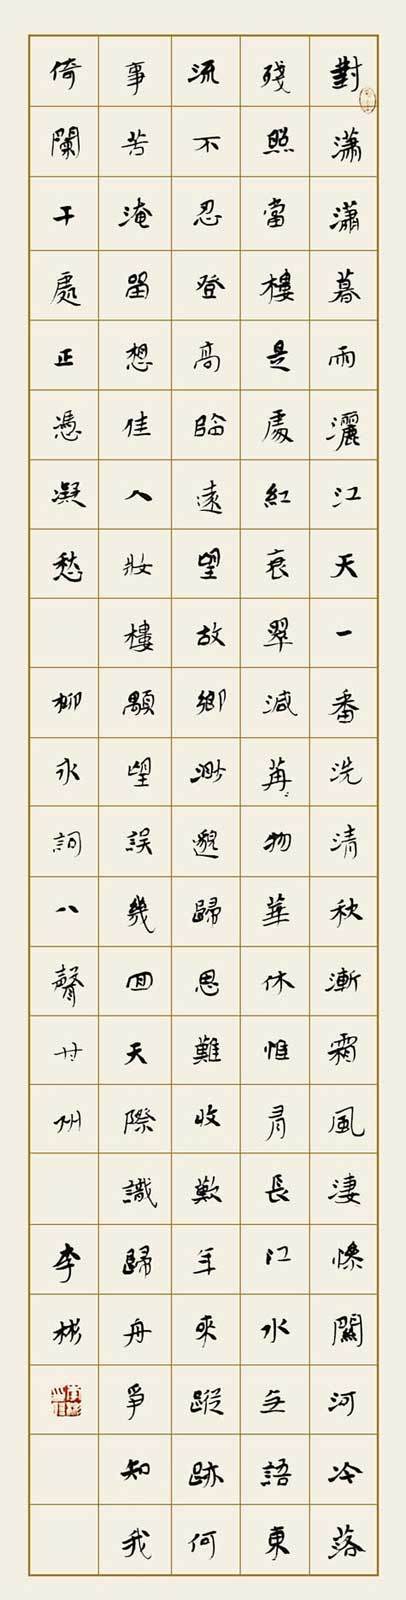 對瀟瀟暮雨灑江天一番洗清秋漸霜風淒慘關河冷落
殘照當樓是處紅衰翠減苒〻物華休惟有長江水无語東
流不忍登高臨遠望故鄉渺邈歸思難收歎年來蹤跡何
事苦淹留想佳人妝樓顒望誤幾回天際識歸舟爭知我
倚闌干處正憑凝愁 柳永詞八聲甘州 李彬